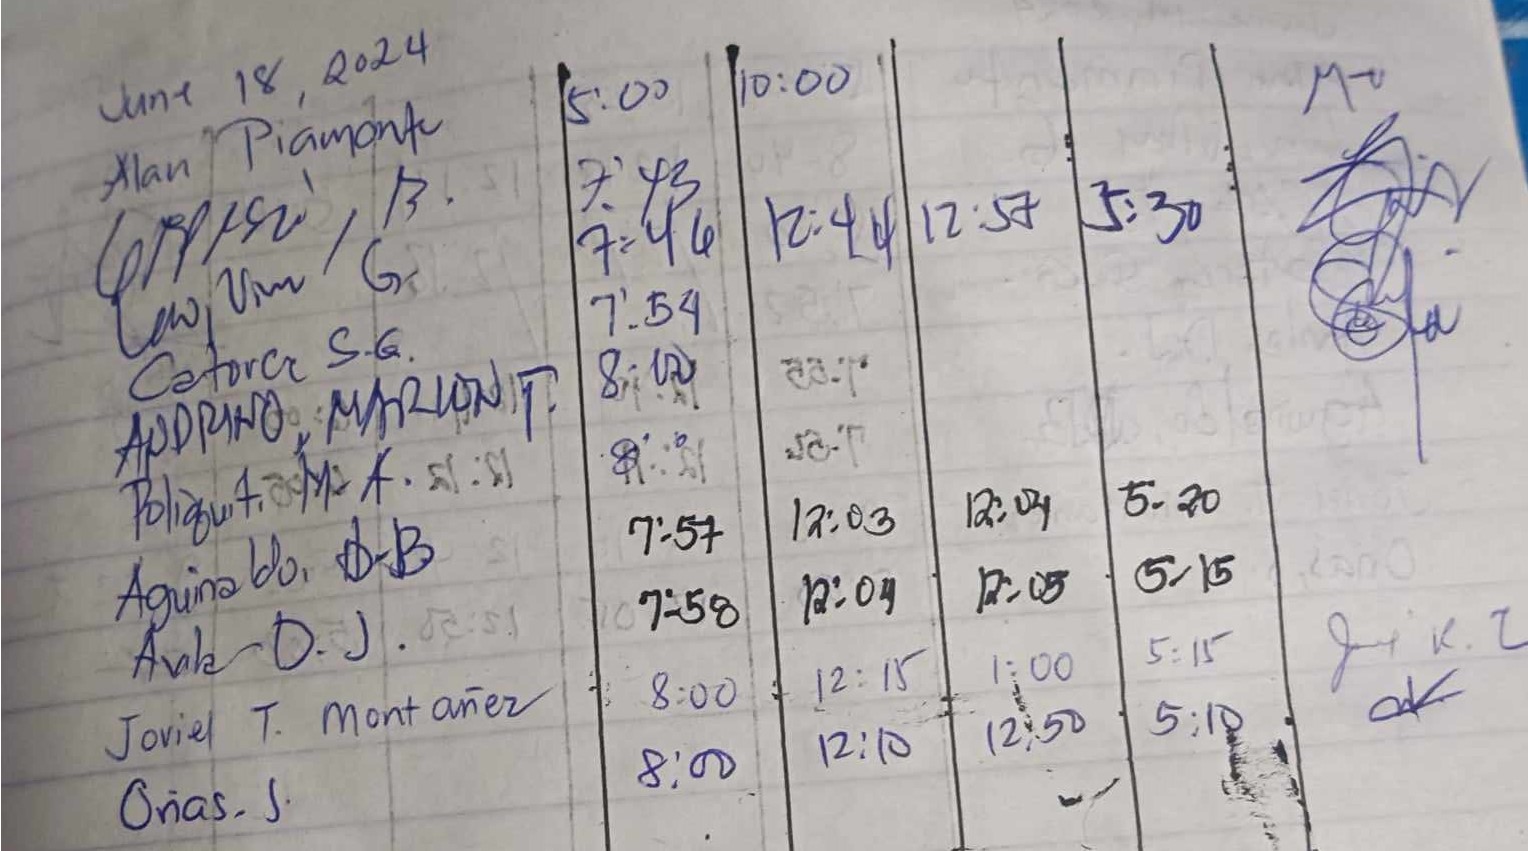 June 18, 2024
Alan Piamonte 5:00 10:00
B. 7:43
Law, Vim G. 7:46 12:44 12:57 5:30
Catorce S.G. 7:54
ANDRINO, MARLON T. 8:00
Poliquit. M A.
Aguinaldo, D-B 7:57 12:03 12:04 5-20
Avale D.J. 7:58 12:04 12:05 5-15
Joviel T. Montañez 8:00 12:15 1:00 5:15
Oñas. J. 8:00 12:10 12:50 5:10